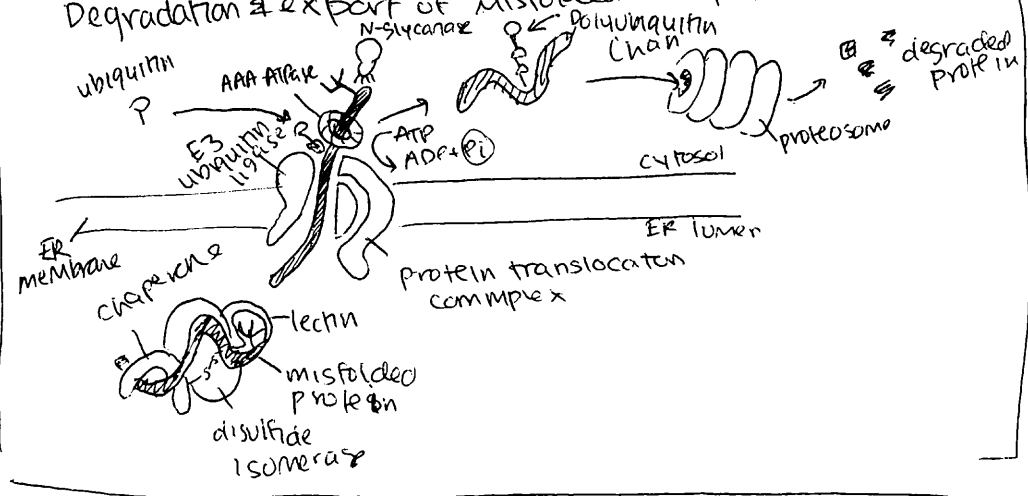 Degradation & export of Misfolded
N-glycanase
Polyubiquitin
Chan
ubiquitin
AAA ATPase
degraded
protein
E3
ubiquitin
ligase
ATP
ADP + Pi
proteosome
cytosol
ER lumen
ER
membrane
chaperone
protein translocaton
commplex
lectin
misfolded
protein
disulfide
isomerase